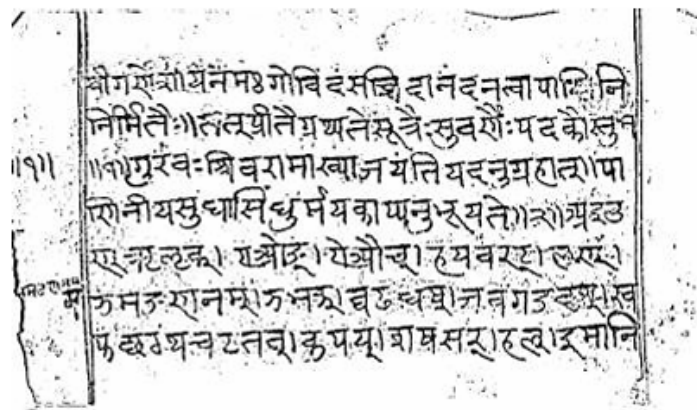 श्रीगणेशायनमः गोविंदसच्चिदानंदनत्वापाणिनि
निर्मितैः॥तत्प्रीतैग्रथ्यतेसूत्रैःसुवर्णैःपदकौस्तुभ
॥१॥
॥१॥गुरवःशिवरामाख्याजयंतियदनुग्रहात्॥पा
णिनीयसुधासिंधुर्मयकाप्यनुभूयते॥२॥अइउ
ण्ऋलृक्।एओङ्।ऐऔच्।हयवरट्।लण्।
ञमङणनम्।झभञ्।घढधष्।जबगडदश्।ख
फछठथचटतव्।कपय्।शषसर्।हल्।इमानि